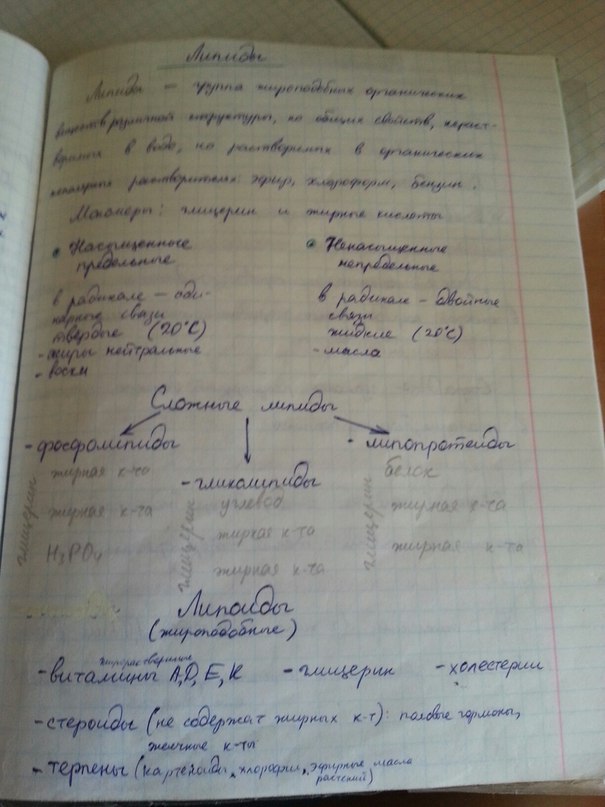 Липиды
Липиды – группа жироподобных органических
веществ различной структуры, но общих свойств, нераст-
воримых в воде, но растворимых в органических
растворителях: эфир, хлороформ, бензин.
Мономеры: глицерин и жирные кислоты
• Насыщенные • Ненасыщенные
предельные непредельные
в радикале – оди- в радикале – двойные
нарные связи связи
твердые (20°C) жидкие (20°C)
- жиры нейтральные - масла
- воски
Сложные липиды
- фосфолипиды - липопротеиды
- гликолипиды
глицерин жирная к-та
жирная к-та
H3PO4
глицерин углевод
жирная к-та
жирная к-та
глицерин белок
жирная к-та
жирная к-та
Липоиды
(жироподобные)
жирорастворимые
- витамины A,D,E,K - глицерин - холестерин
- стероиды (не содержат жирных к-т): половые гормоны,
желчные к-ты
- терпены (хлорофилл, эфирные масла
растений)